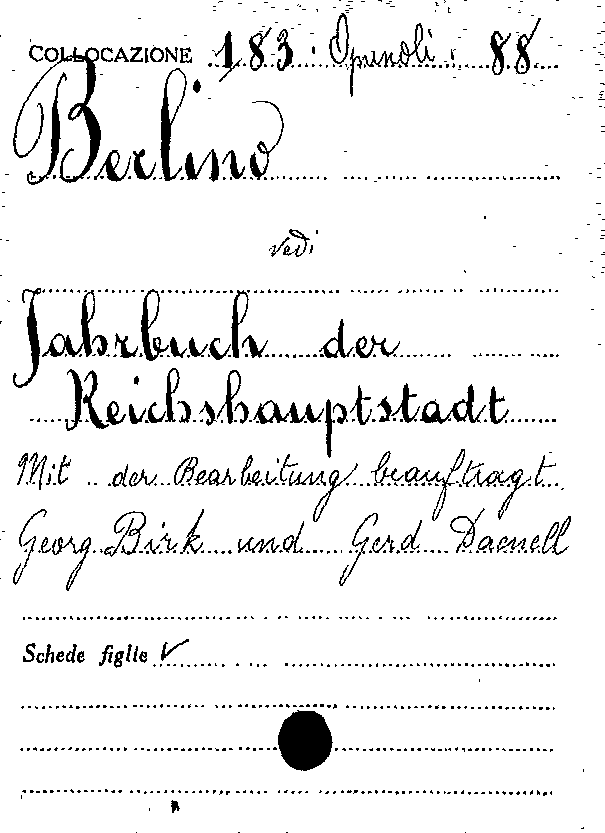 COLLOCAZIONE 183. Opuscoli. 88
Berlino
vedi
Jahrbuch der
Reichshauptstadt
Mit der Bearbeitung beauftragt
Georg Birk und Gerd Daenell
Schede figlie